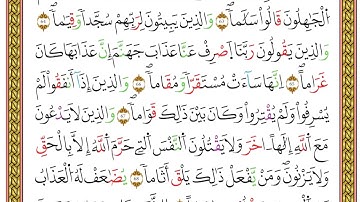 الْجَٰهِلُونَ قَالُوا۟ سَلَٰمًا وَالَّذِينَ يَبِيتُونَ لِرَبِّهِمْ سُجَّدًا وَقِيَٰمًا
وَالَّذِينَ يَقُولُونَ رَبَّنَا ٱصْرِفْ عَنَّا عَذَابَ جَهَنَّمَ إِنَّ عَذَابَهَا كَانَ
غَرَامًا إِنَّهَا سَآءَتْ مُسْتَقَرًّا وَمُقَامًا وَالَّذِينَ إِذَآ أَنفَقُوا۟ لَمْ
يُسْرِفُوا۟ وَلَمْ يُقْتِرُوا۟ وَكَانَ بَيْنَ ذَٰلِكَ قَوَامًا وَالَّذِينَ لَا يَدْعُونَ
مَعَ اللَّهِ إِلَٰهًا ـاخَرَ وَلَا يَقْتُلُونَ النَّفْسَ الَّتِى حَرَّمَ اللَّهُ إِلَّا بِالْحَقِّ
وَلَا يَزْنُونَ وَمَن يَفْعَلْ ذَٰلِكَ يَلْقَ أَثَامًا يُضَٰعَفْ لَهُ الْعَذَابُ